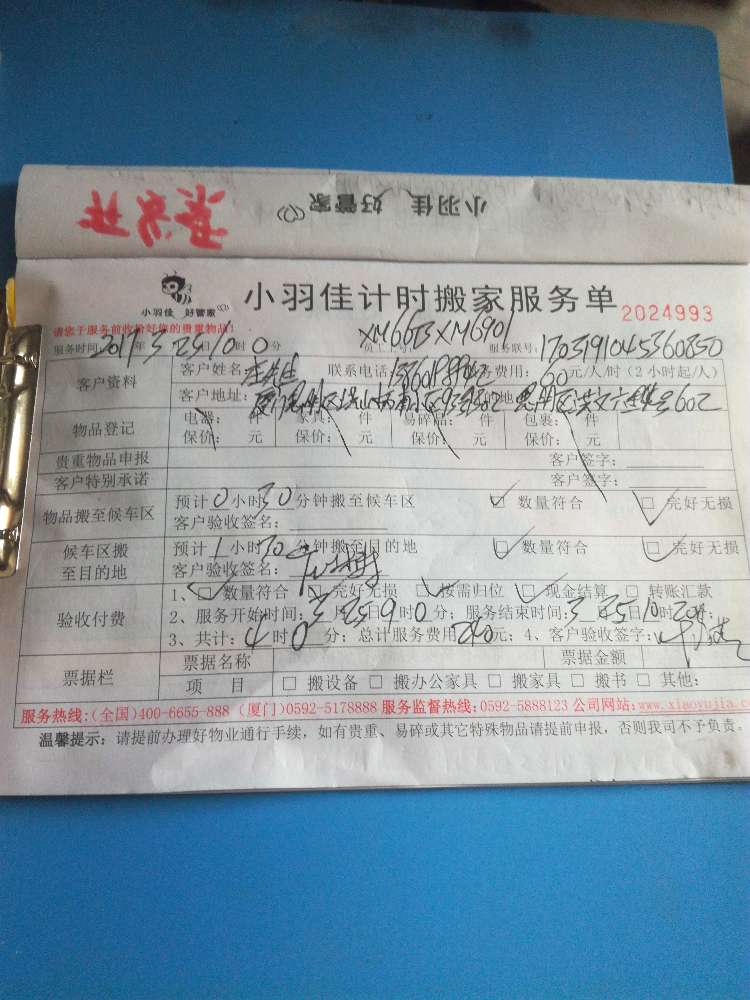 小羽佳 好管家
小羽佳 好管家
小羽佳计时搬家服务单 2024993
请您于服务前收拾好您的贵重物品!
服务时间:2017年3月25日10时0分 员工工号:XM6613XM6901 服务联号:1703191045360850
客户资料 客户姓名: 联系电话: 费用:60元/人/时(2小时起/人)
客户地址: 目的地:
物品登记 电器: 件 家具: 件 易碎品: 件 包裹: 件
保价: 元 保价: 元 保价: 元 保价: 元
贵重物品申报 客户签字:
客户特别承诺 客户签字:
物品搬至候车区 预计0小时30分钟搬至候车区 ☑ 数量符合 ☑ 完好无损
客户验收签名:
候车区搬至目的地 预计1小时30分钟搬至目的地 ☑ 数量符合 ☑ 完好无损
客户验收签名:
验收付费 1、☑ 数量符合 ☑ 完好无损 ☑ 按需归位 ☑ 现金结算 □ 转账汇款
2、服务开始时间:3月25日9时0分;服务结束时间:3月25日10时
3、共计:4时0分;总计服务费用240元;4、客户验收签字:
票据栏 票据名称 票据金额
项 目 □ 搬设备 □ 搬办公家具 □ 搬家具 □ 搬书 □ 其他:
服务热线:(全国)400-6655-888 (厦门)0592-5178888 服务监督热线:0592-5888123 公司网站:www.xiaoyujia.c
温馨提示:请提前办理好物业通行手续,如有贵重、易碎或其它特殊物品请提前申报,否则我司不予负责。